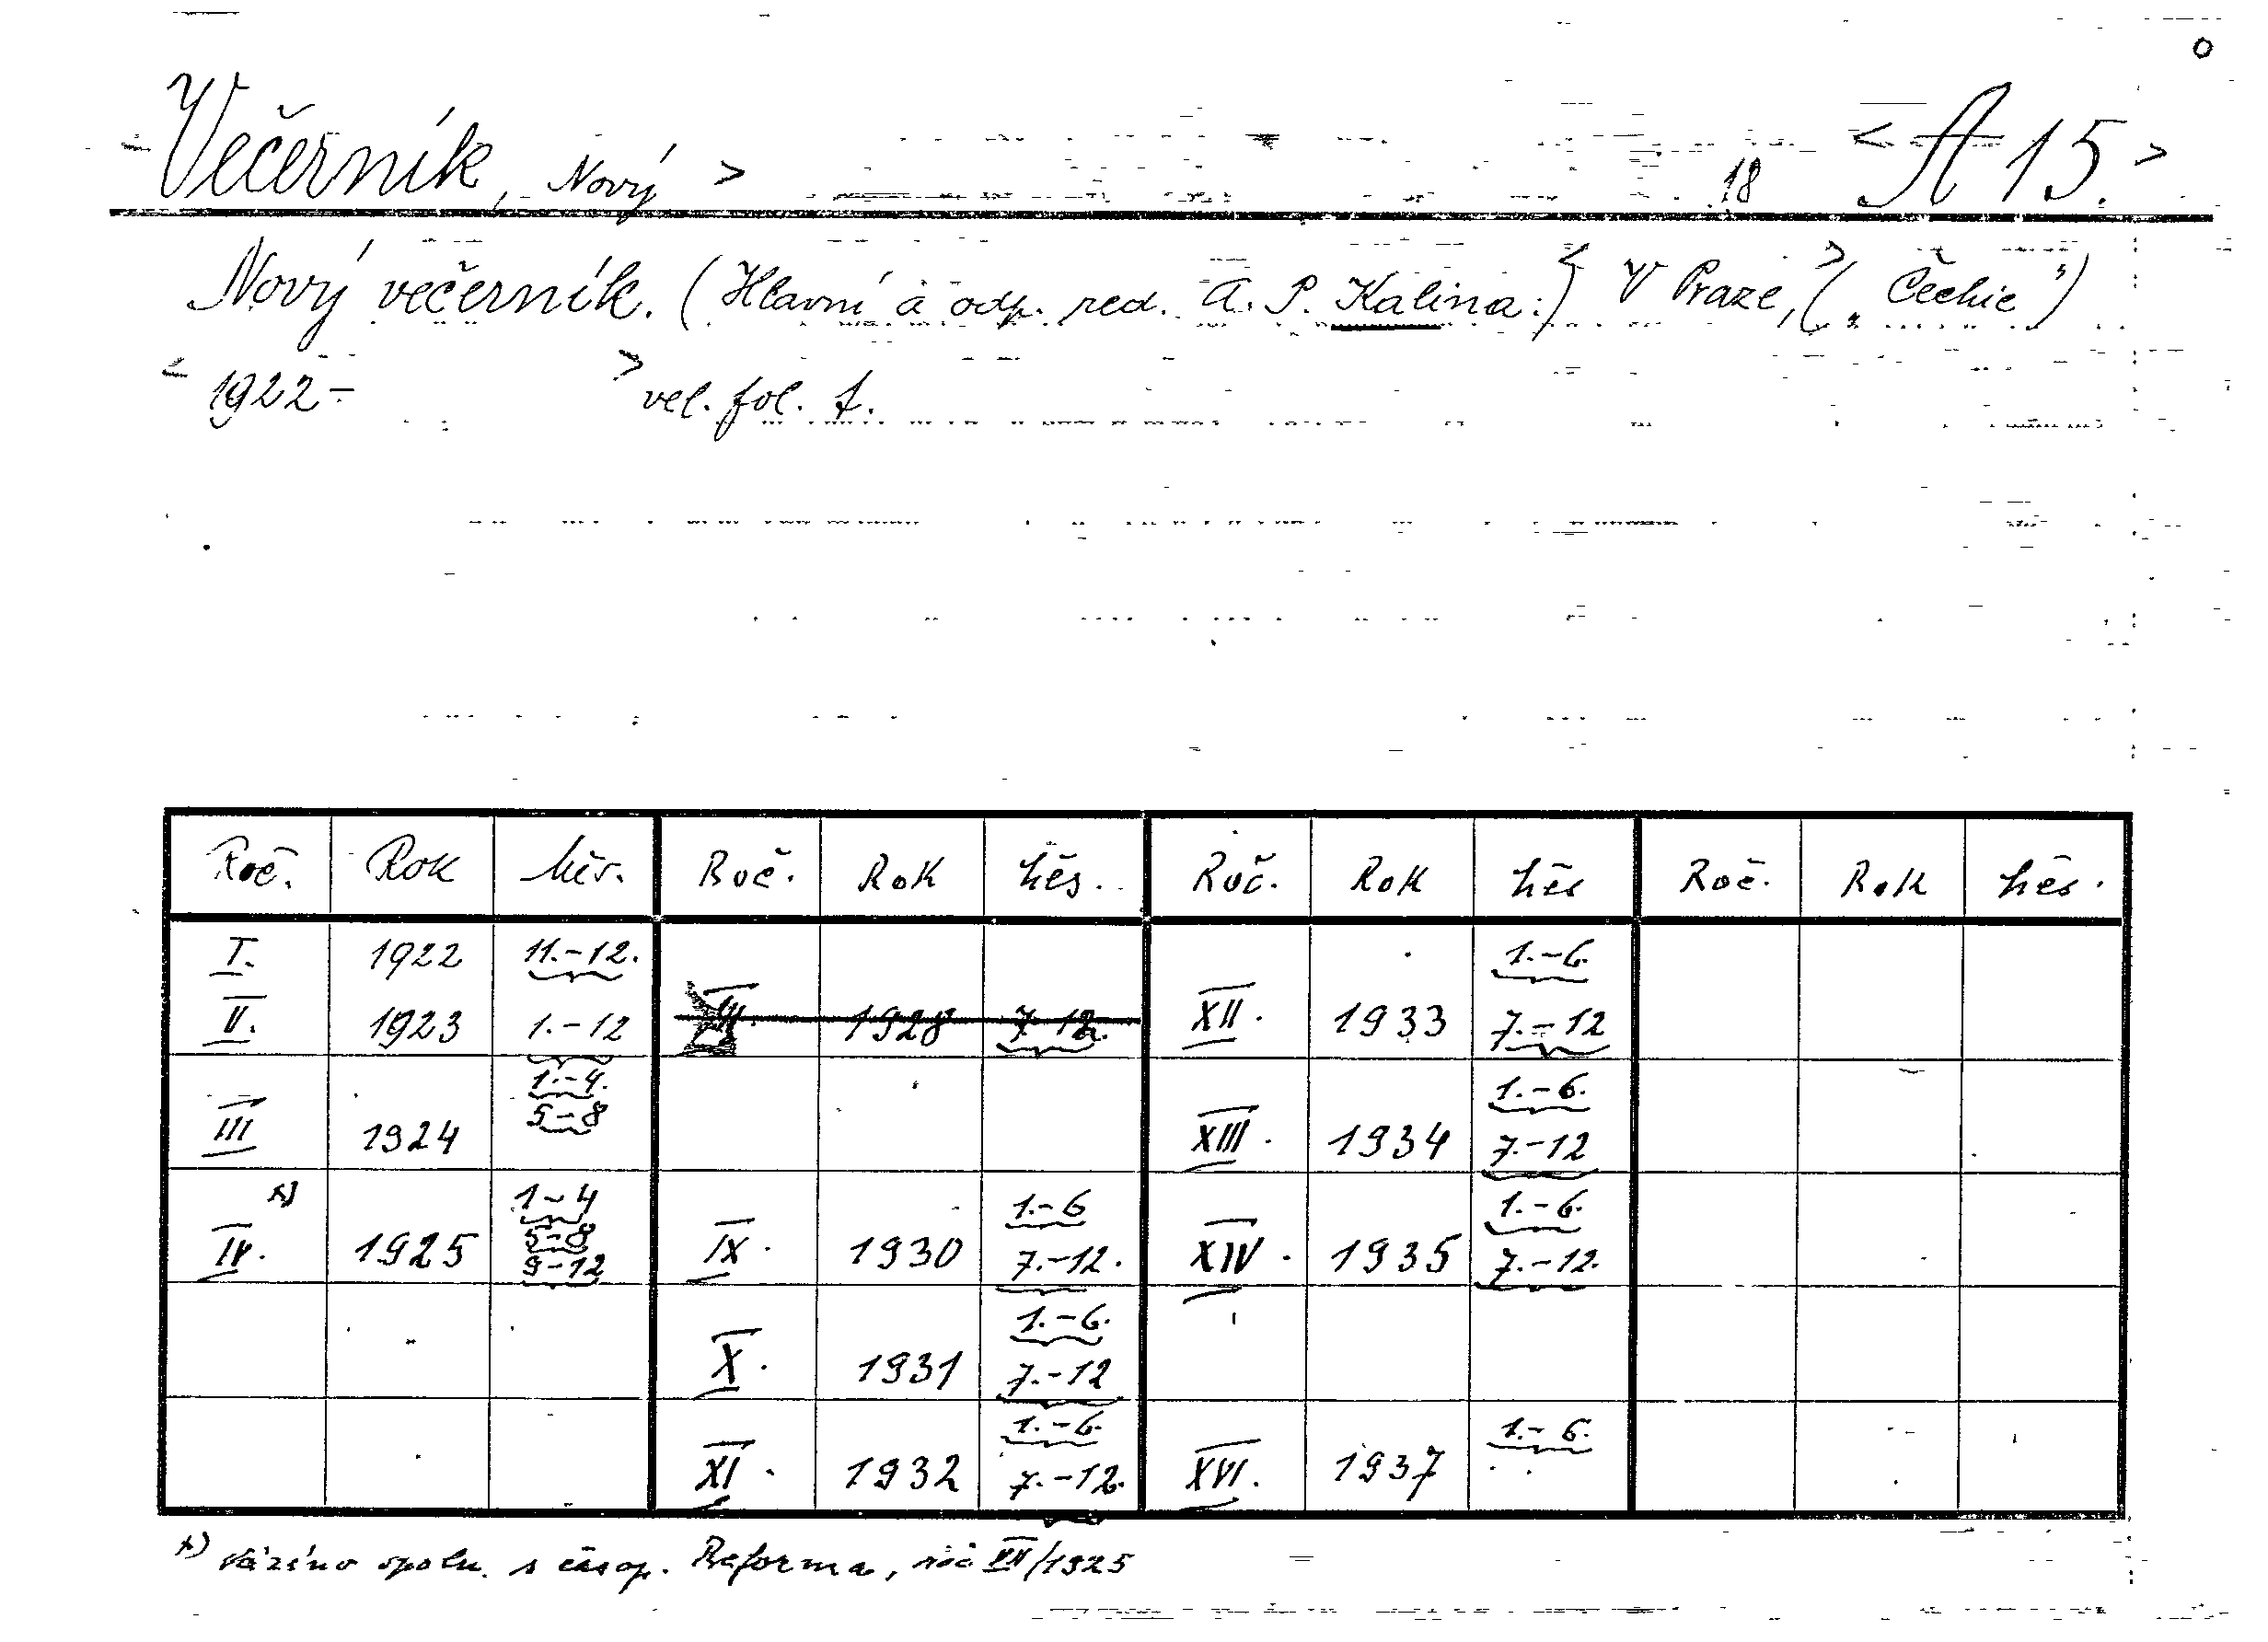 < Večerník, Nový > 18 < A 15. >
Nový večerník. (Hlavní a odp. red. A. P. Kalina.) < V Praze, > („Čechie")
< 1922 - > vel. fol. f.
Roč. Rok Měs. Roč. Rok Měs. Roč. Rok Měs Roč. Rok Měs.
I. 1922 11.-12. 1.-6.
II. 1923 1.-12 1928 7-12. XII. 1933 7.-12
1.-4. 1.-6.
5-8
III 1924 XIII. 1934 7.-12
x) 1-4 1.-6 1.-6.
5-8
IV. 1925 9-12 IX. 1930 7.-12. XIV. 1935 7.-12.
1.-6.
X. 1931 7.-12
1.-6. 1.- 6.
XI. 1932 7.-12. XVI. 1937
x) vázáno spolu s časop. Reforma, roč VII/1925